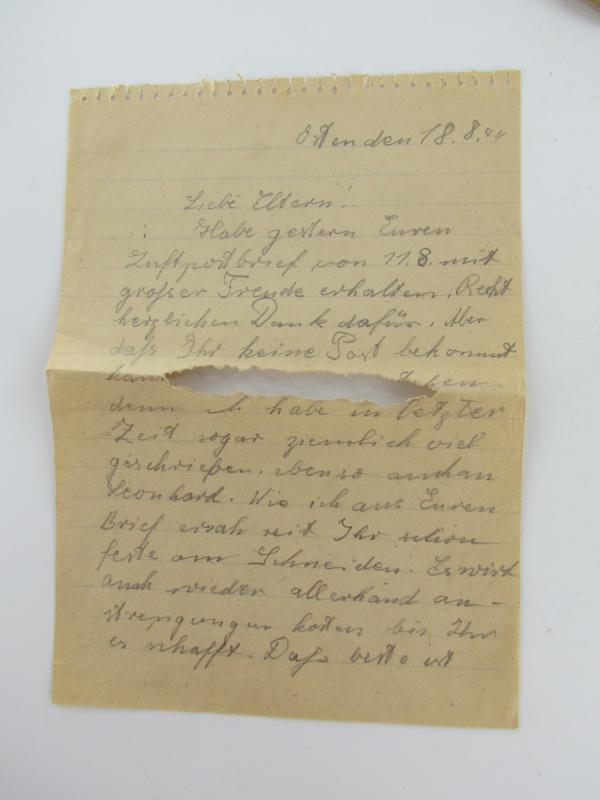 Ostenden 18.8.44
Liebe Eltern!
Habe gestern Euren
Luftpostbrief von 11.8. mit
großer Freude erhalten. Recht
herzlichen Dank dafür. Aber
daß Ihr keine Post bekommt
kann
denn ich habe in letzter
Zeit sogar ziemlich viel
geschrieben. ebenso auch an
Leonhard. Wie ich aus Euren
Brief ersah seit Ihr schon
feste am Schneiden. Es wird
auch wieder allerhand an-
strengungen kosten bis Ihr
es schafft. Daß beste ist